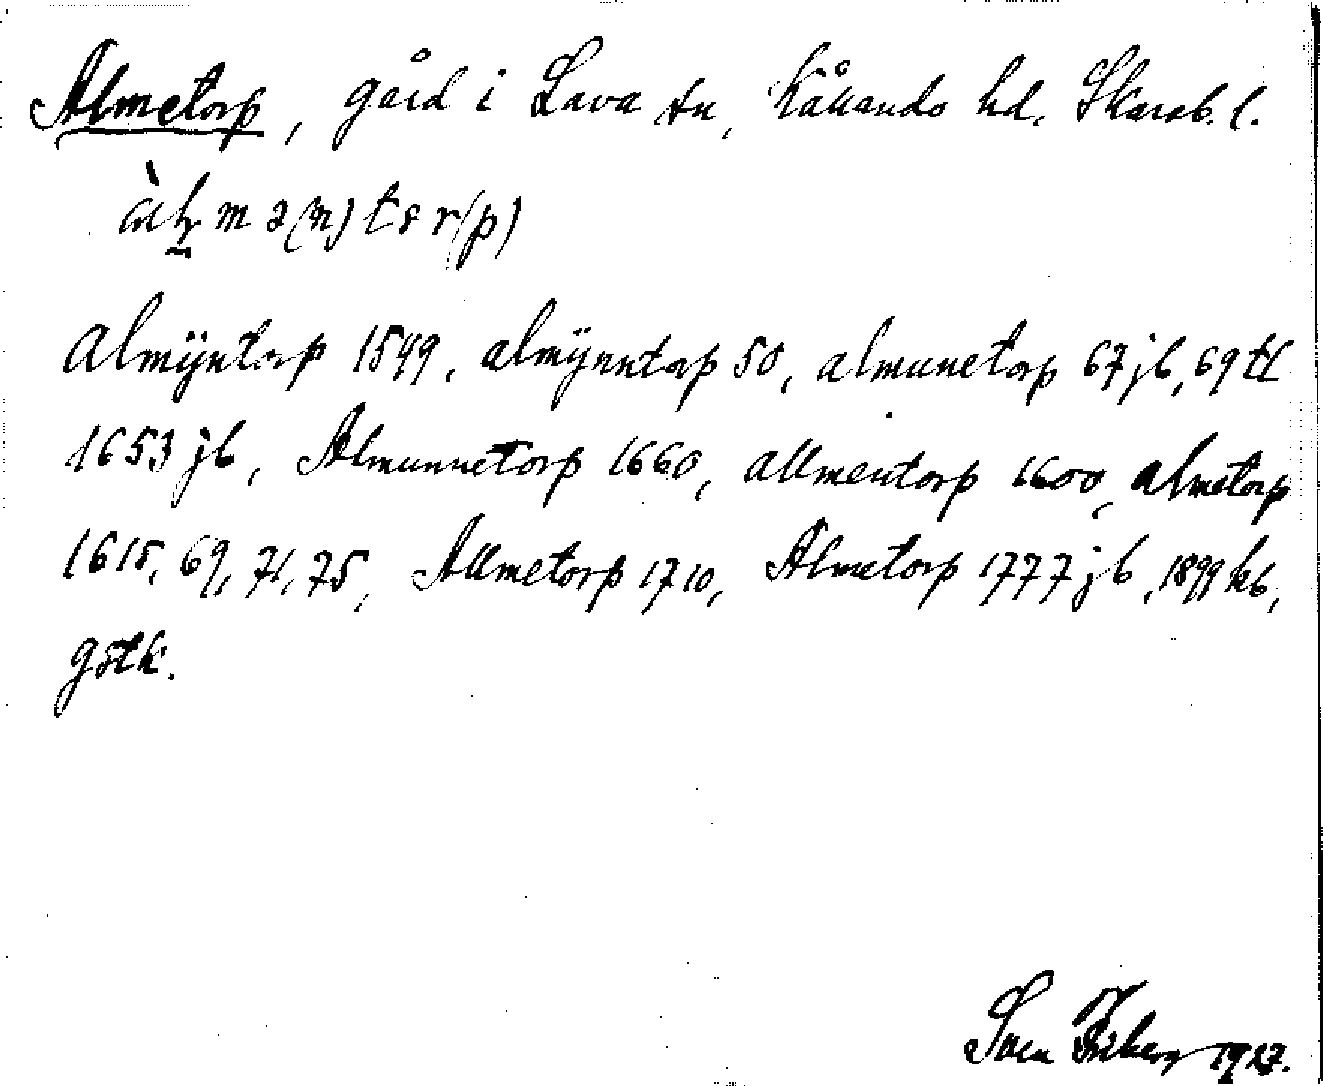 Almetorp, gård i Lava sn, Kållands hd. Skarab. l.
m ə(n) t
Almÿntorp 1549, almÿnntorp 50, almunetorp 67 jb, 69 tl
1653 jb, Almunnetorp 1660, allmentorp 1600, almetorp
1615, 69, 71, 75, Allmetorp 1710, Almetorp 1777 jb, 1899 kb,
gstk.
Sven Friberg 1927.